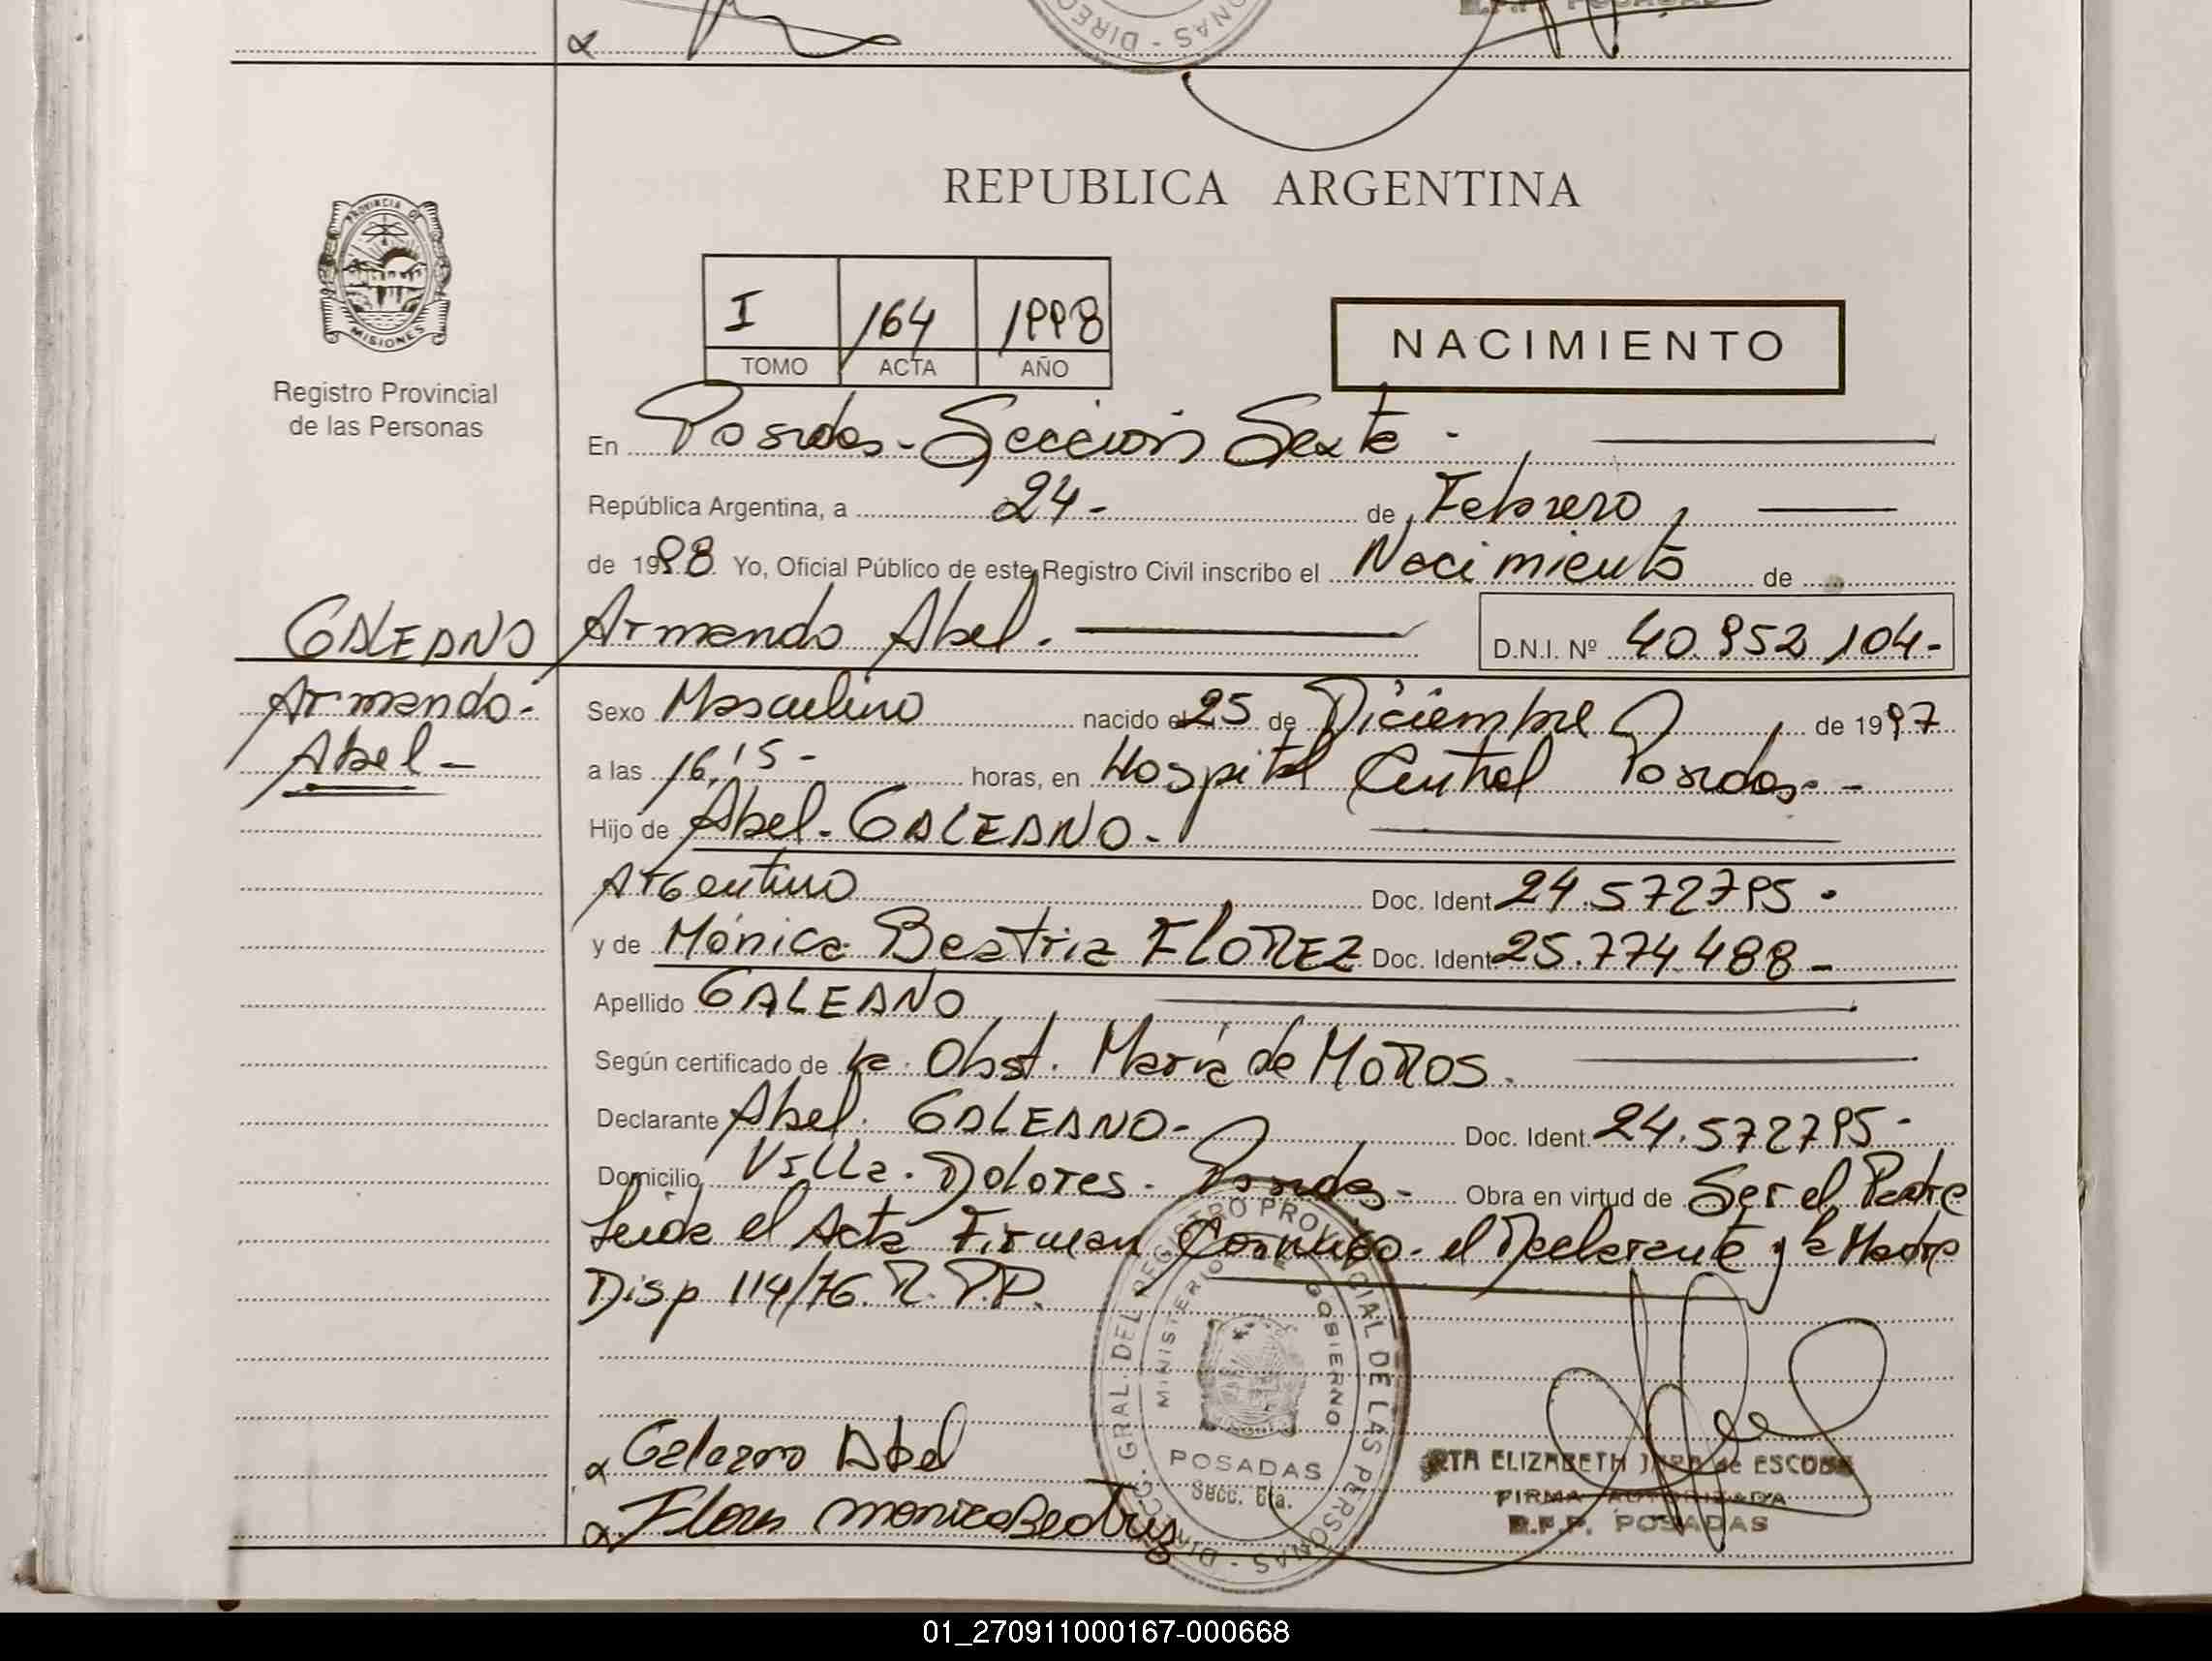 REPUBLICA ARGENTINA
PROVINCIA DE
MISIONES
Registro Provincial
de las Personas
I 164 1998
TOMO ACTA AÑO
NACIMIENTO
En Posadas - Sección Sexta -
República Argentina, a 24- de Febrero
de 1998 Yo, Oficial Público de este Registro Civil inscribo el Nacimiento de
GALEANO Armando Abel. D.N.I. Nº 40.952.104-
Armando-
Abel-
Sexo Masculino nacido el 25 de Diciembre de 1997
a las 16,15- horas, en Hospital Central Posadas.-
Hijo de Abel. GALEANO.
Argentino Doc. Ident. 24.572795.
y de Mónica Beatriz FLOREZ Doc. Ident. 25.774.488-
Apellido GALEANO
Según certificado de la Obst. María de MOROS.
Declarante Abel. GALEANO- Doc. Ident. 24.572795-
Domicilio Villa Dolores. Posadas- Obra en virtud de Ser el Padre
Leida el Acta Firman Conmigo. el Declarante y la Madre
Disp 114/76. R.P.P.
DIRECC. GRAL. DEL REGISTRO PROVINCIAL DE LAS PERSONAS -
MINISTERIO DE GOBIERNO
POSADAS
Secc. 6ta.
Galeano Abel
Flores monica Beatriz
ELIZABETH JARA de ESCOBAR
FIRMA AUTORIZADA
R.P.P. POSADAS
01_270911000167-000668